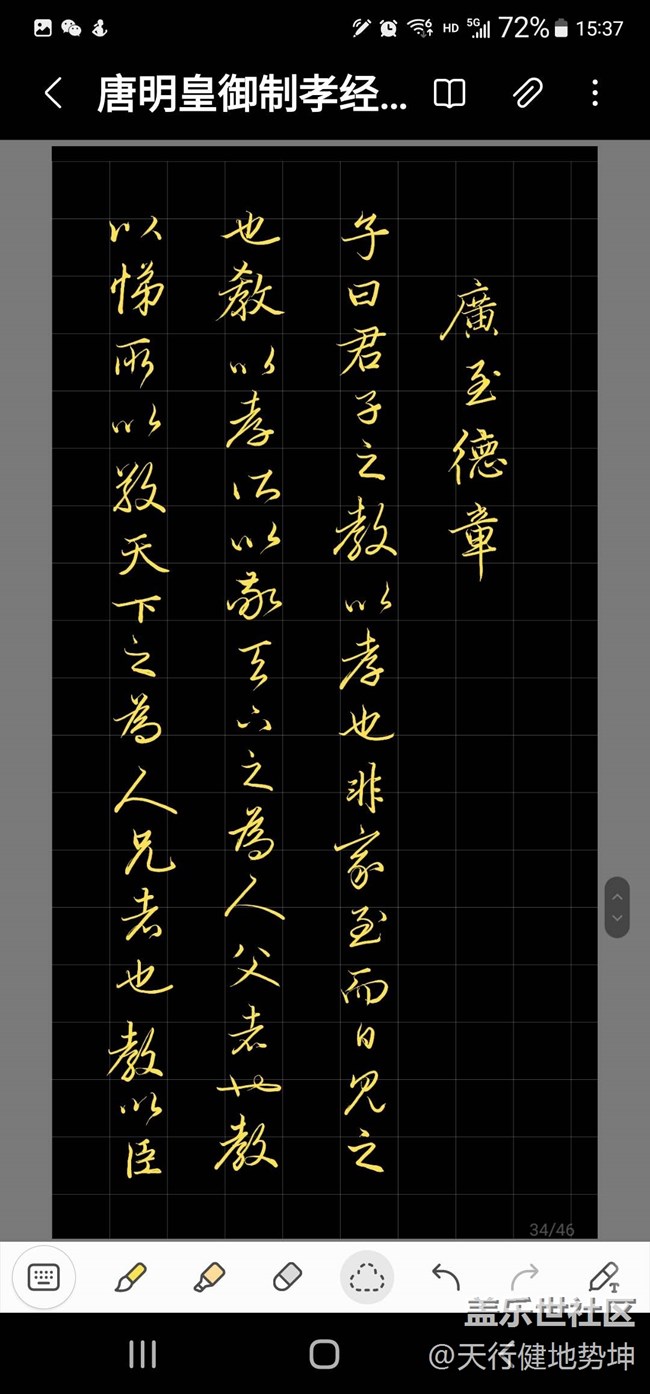 72% 15:37
唐明皇御制孝经...
廣至德章
子曰君子之教以孝也非家至而日見之
也教以孝所以敬天下之為人父者也教
以悌所以敬天下之為人兄者也教以臣
34/46
盖乐世社区
@天行健地势坤